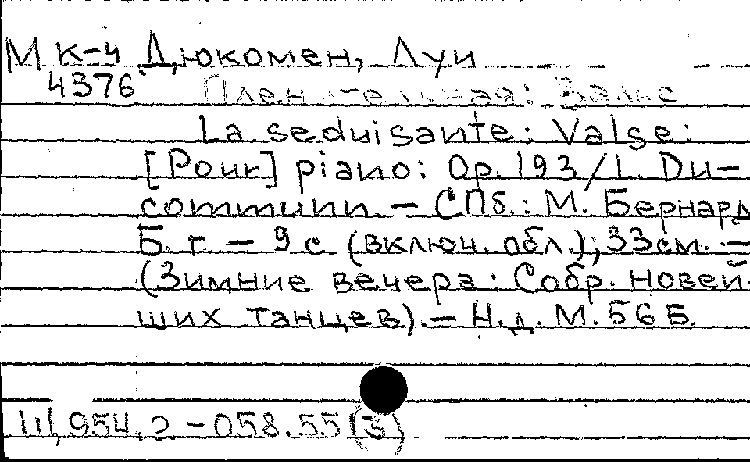 М к-4 Дюкомен, Луи
4376
Пленительная: Вальс
La seduisante: Valse:
[Pour] piano: Op. 193/L. Du-
communn. – СПб.: М. Бернард
Б. г. – 9 с (включ. обл.); 33 см. –
(Зимние вечера: Собр. новей-
ших танцев). – Н.д. М. 56 Б.
Ш, 954.2 – 058.55 (3)